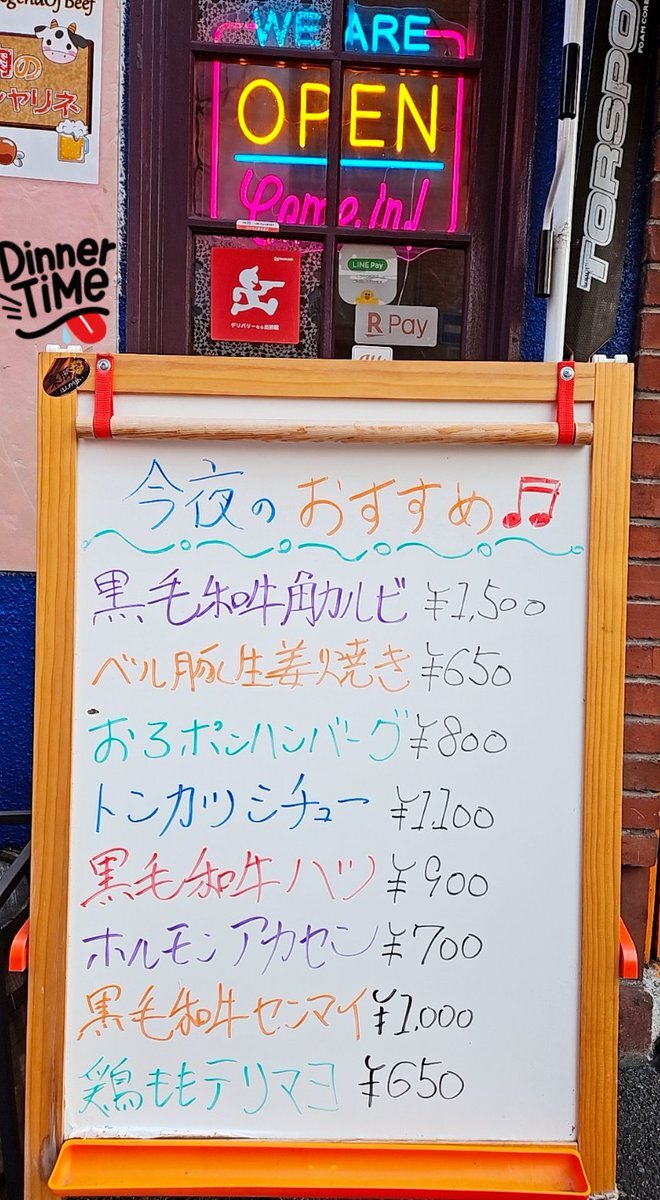 Beef
WE ARE
OPEN
Come In!
Dinner
TIME
LINE Pay
R Pay
TORSPO
今夜の おすすめ♫
黒毛和牛角カルビ ¥1,500
ベル豚生姜焼き ¥650
おろポンハンバーグ ¥800
トンカツシチュー ¥1,100
黒毛和牛ハツ ¥900
ホルモンアカセン ¥700
黒毛和牛センマイ ¥1,000
鶏ももテリマヨ ¥650